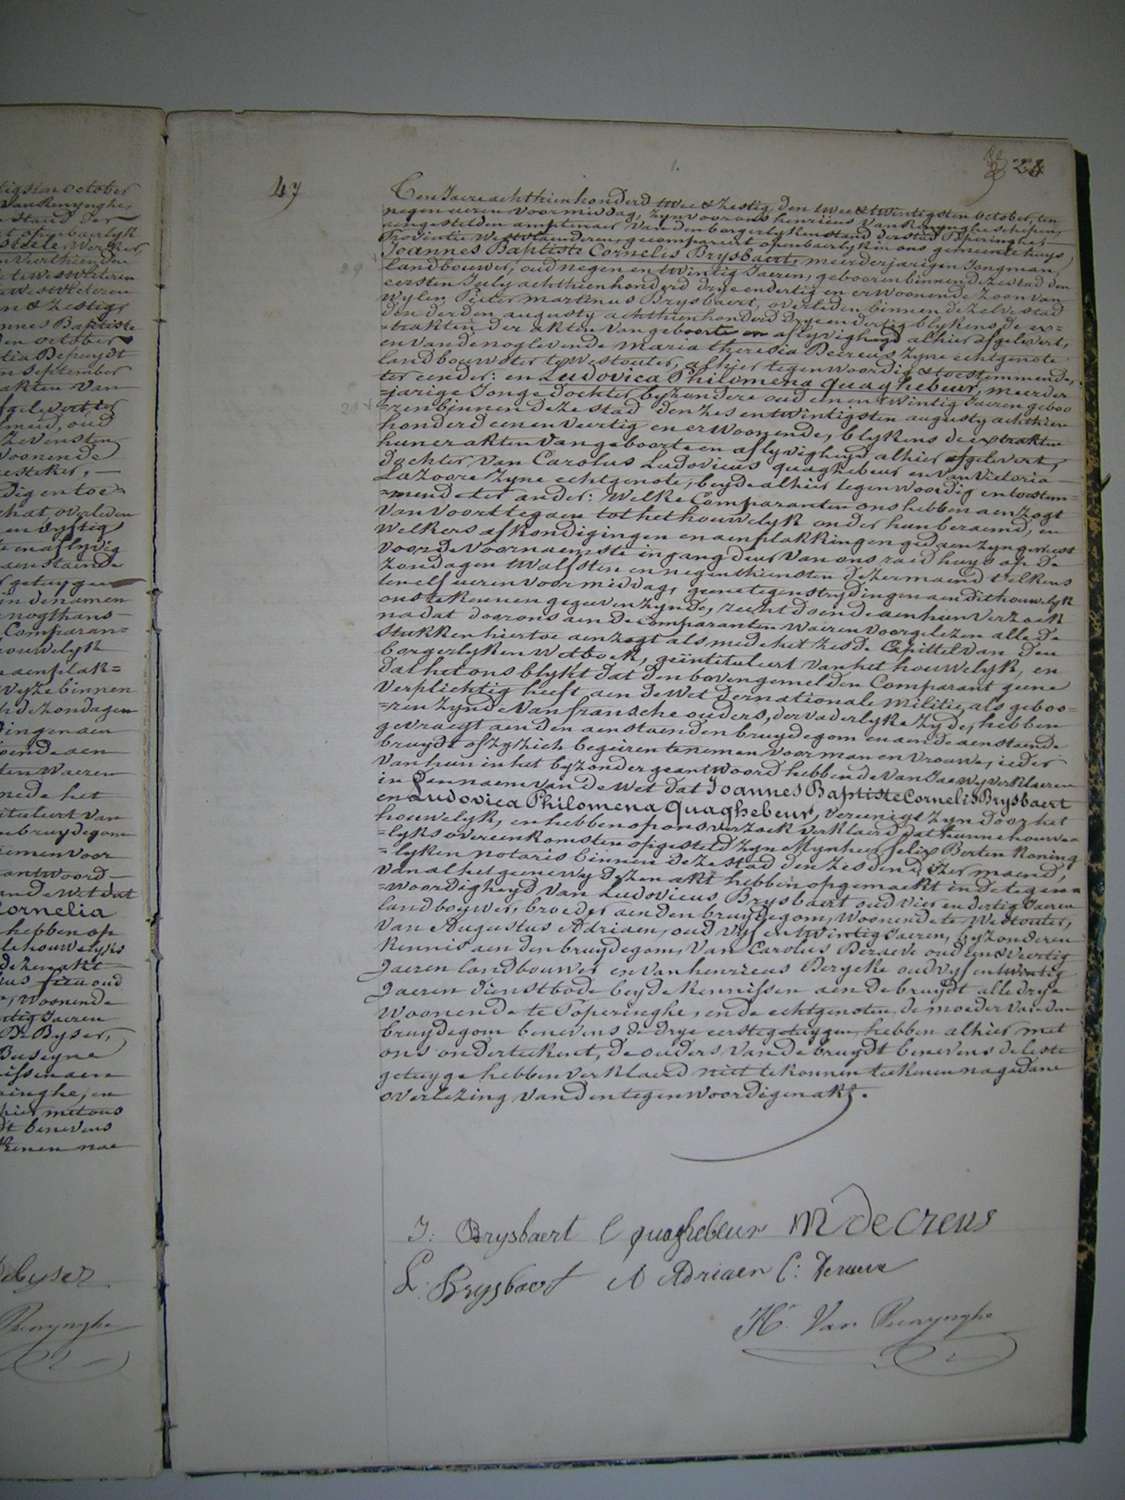 tigsten october
Van Renynghe,
stand der
t openbaerlyk
Werker
nnes Baptiste
den october
tia Depuydt
n september
akten van
fgelevert, ter
meid, oud
zevensten
Woonende
digen toe=
chat, overleden
en dertig
getuygen
in de namen
nogthans
Comparan=
ouwelyk
aenplak=
wyze binnen
de zondagen
dingen aen
oende aen
ten Waeren
mede het
tituleert van
nbruydegom
emen voor
antwoord
ande Wet dat
Cornelia
hebben op
dezen akt
oud
Woonende
tig Jaeren
De Byser,
Buseyne
issen aen
ringhe, en
hier met ons
dt benevens
kenen nae
Debyser
Renynghe
47
28
Een Jaere achthien honderd twee & zestig, den twee & twintigsten october, ten
negen ueren voormiddag, zyn voor ons henricus Van Renynghe schepen,
aengestelden amptenaer van den borgerlyken stand der stad Poperinghe,
Provintie Westvlaenderen, gecompareert openbaerlyk in ons gemeentehuys,
Joannes Baptiste Cornelis Brysbaert, meerderjarigen Jongman,
29
landbouwer, oud negen en twintig Jaeren, geboren binnen deze stad den
eersten July achthien honderd drye en dertig en er Woonende Zoon van
Wylen Pieter Martinus Brysbaert, overleden binnen dezelve stad
den derden augusty achthien honderd drye en dertig blykens de ex=
=trakten der akten van geboorte en aflyvigheyd alhier afgelevert,
en van de nog levende Maria Theresia Decreus zyne echtgenote
landbouwster te Westouter, alhier tegenwoordig & toestemmende,
ter eender: en Ludovica Philomena Quaghebeur, meerder
=jarige Jonge dochter byzondere oud een en twintig Jaeren geboo
21
=ren binnen deze stad den zes en twintigsten augusty achthien
honderd een en veertig en er Woonende, blykens de extrakten
hunner akten van geboorte en aflyvigheyd alhier afgelevert,
dochter van Carolus Ludovicus quaghebeur en van Victoria
Lazoore zyne echtgenote, beyde alhier tegenwoordig en toestem=
=mende ter ander: Welke Comparanten ons hebben aenzogt
van voort te gaen tot het houwelyk onder hun beraemd, en
Welkers afkondigingen en aenplakkingen gedaen zyn geweest
voor de voornaemste ingang deur van ons raedhuys op de
zondagen twalfsten en negenthiensten dezer maend telkens
ten elf ueren voormiddag, geene tegenstrydingen aen dit houwelyk
ons te kennen gegeven zynde, recht doende aen hun verzoek
na dat door ons aen de Comparanten Waeren voorgelezen alle de
stukken hiertoe aenzogt als mede het zesde Capittel van den
borgerlyken Wetboek, geintituleert van het houwelyk, en
dat het ons blykt dat den bovengemelden Comparant geene
verplichtig heeft aen de Wet der nationale Militie als geboo=
=ren zynde van fransche ouders, der vaderlyke zyde, hebben
gevraegt aen den aenstaenden bruydegom en aen de aenstaende
bruydt of zy zich begeiren te nemen voor man en vrouwe, ieder
van hun in het byzonder geantwoord hebbende van Jae, Wy, verklaeren
in den naem van de Wet dat Joannes Baptiste Cornelis Brysbaert
en Ludovica Philomena Quaghebeur, vereenigt zyn door het
houwelyk, en hebben op ons verzoek verklaerd, dat hunne houwe=
=lyks overeenkomsten opgesteld zyn Mynheer felix Berten koning
=lyken notaris binnen deze stad den zesden dezer maend,
van al het geene Wy dezen akt hebben opgemaekt in de tegen=
=woordigheyd van Ludovicus Brysbaert oud vier en dertig Jaeren
landbouwer, broeder aen den bruydegom, Woonende te Westouter,
van Augustus Adriaen, oud vyf en twintig Jaeren, byzonderen
kennis aen den bruydegom, van Carolus Deraeve oud een & veertig
Jaeren landbouwer en van henricus Berycke oud vyf en twintig
Jaeren dienstbode beyde kennissen aen de bruydt alle drye
Woonende te Poperinghe, en de echtgenoten, de moeder van den
bruydegom benevens de drye eerste getuygen hebben alhier met
ons onderteekent, de ouders van de bruydt benevens de leste
getuyge hebben verklaerd niet te konnen teekenen na gedane
overlezing van den tegenwoordigen akt.
J: Brysbaert L quaghebeur M decreus
L: Brysbaert A Adriaen C: Deraeve
H. Van Renynghe